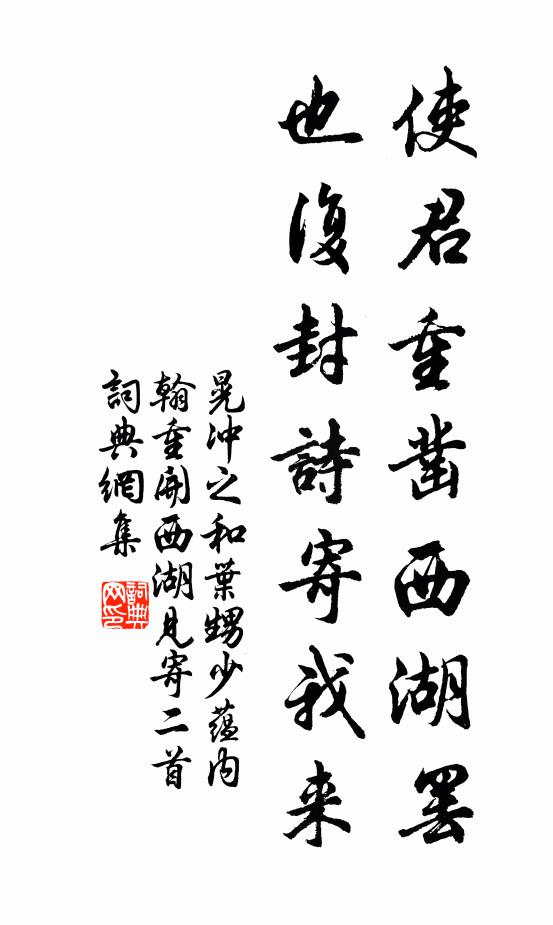 使君重凿西湖罢
也復封詩寄我来
晁冲之和葉甥少蕴内
翰重開西湖見寄二首
詞典網集
詞典
网印